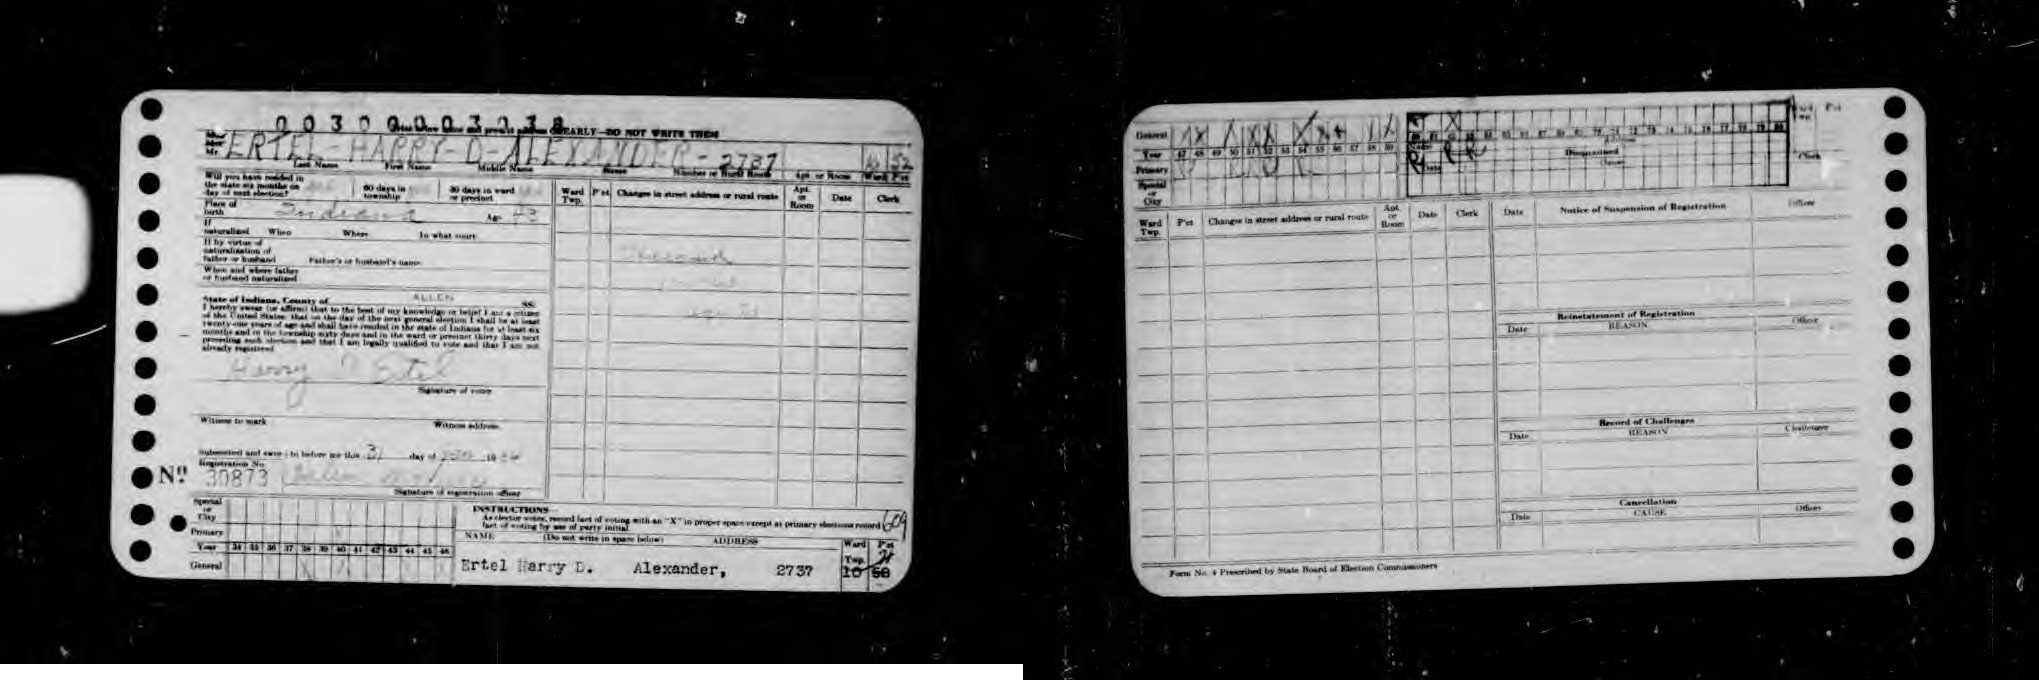 00300003738
CLEARLY—DO NOT WRITE THEM
Mr. ERTEL - HARRY - D - ALEXANDER - 2737 52
Last Name First Name Middle Name Street Number or Rural Route Apt. or Room Ward P'ct
Will you have resided in
the state six months on
day of next election?
60 days in
township
30 days in ward
or precinct
Place of
birth Indiana Age 43
If
naturalized When Where In what court
If by virtue of
naturalization of
father or husband Father's or husband's name
When and where father
or husband naturalized
State of Indiana, County of ALLEN SS:
I hereby swear (or affirm) that to the best of my knowledge or belief I am a citizen
of the United States; that on the day of the next general election I shall be at least
twenty-one years of age and shall have resided in the state of Indiana for at least six
months and in the township sixty days and in the ward or precinct thirty days next
preceding such election and that I am legally qualified to vote and that I am not
already registered.
Harry D Ertel
Signature of voter
Witness to mark Witness address
Subscribed and sworn to before me this 31 day of 19
Registration No.
Nº 30873
Signature of registration officer
Ward Twp. P'ct Changes in street address or rural route Apt. or Room Date Clerk
Special
or
City
Primary
Year 34 35 36 37 38 39 40 41 42 43 44 45 46
General
INSTRUCTIONS
As elector votes, record fact of voting with an "X" in proper space except at primary elections record
fact of voting by use of party initial. 609
NAME (Do not write in space below) ADDRESS Ward Twp. P'ct
Ertel Harry D. Alexander, 2737 10 68 21
General
Year 47 48 49 50 51 52 53 54 55 56 57 58 59
Primary
Special
or
City
Disqualified
Clerk
Ward Twp. P'ct Changes in street address or rural route Apt. or Room Date Clerk
Date Notice of Suspension of Registration Officer
Reinstatement of Registration
Date REASON Officer
Record of Challenges
Date REASON Challenger
Cancellation
Date CAUSE Officer
Form No. 4 Prescribed by State Board of Election Commissioners